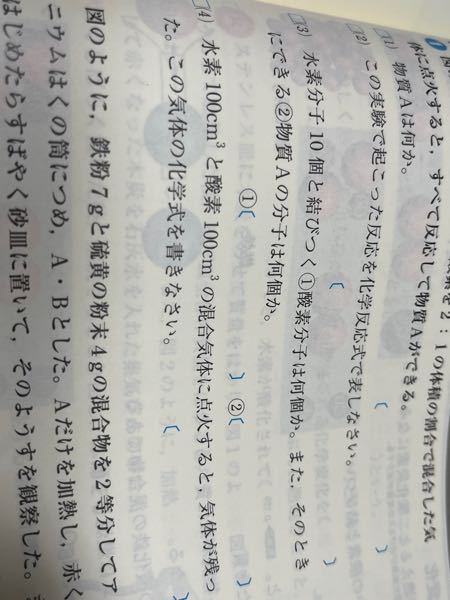 素を2：1の体積の割合で混合した気
体に点火すると，すべて反応して物質Aができる。
(1) 物質Aは何か。
(2) この実験で起こった反応を化学反応式で表しなさい。
(3) 水素分子10個と結びつく①酸素分子は何個か。また，そのとき
にできる②物質Aの分子は何個か。
① ②
(4) 水素100cm³と酸素100cm³の混合気体に点火すると，気体が残っ
た。この気体の化学式を書きなさい。
図のように，鉄粉7gと硫黄の粉末4gの混合物を2等分してア
ニウムはくの筒につめ，A・Bとした。Aだけを加熱し，赤く
はじめたらすばやく砂皿に置いて，そのようすを観察した。